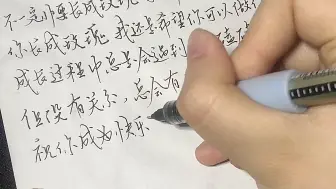 不一定要长成玫瑰
你长成玫瑰 我还是希望你可以做你
成长过程中总是会遇到
但没有关系，总会有
祝你成为快乐